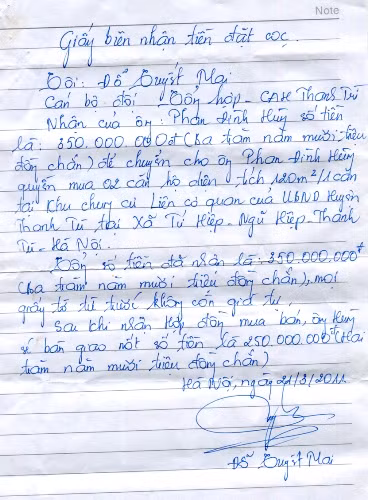 Note
Giấy biên nhận tiền đặt cọc.
Tôi: Đỗ Quyết Mai
Cán bộ đội Tổng hợp - CAH Thanh Trì
Nhận của ôn: Phan Đình Hùng số tiền
là: 350.000.000đ (ba trăm năm mươi triệu
đồng chẵn) để chuyển cho ôn Phan Đình Hùng
quyền mua 02 căn hộ diện tích 120m²/1 căn
tại Khu chung cư Liên cơ quan của UBND Huyện
Thanh Trì tại Xã Tứ Hiệp - Ngũ Hiệp - Thanh
Trì - Hà Nội.
Tổng số tiền đã nhận là: 350.000.000đ
(ba trăm năm mươi triệu đồng chẵn), mọi
giấy tờ từ trước không còn giá trị,
sau khi nhận hợp đồng mua bán, ôn Hùng
sẽ bàn giao nốt số tiền là 250.000.000đ (Hai
trăm năm mươi triệu đồng chẵn)
Hà Nội, ngày 21/3/2011
Đỗ Quyết Mai